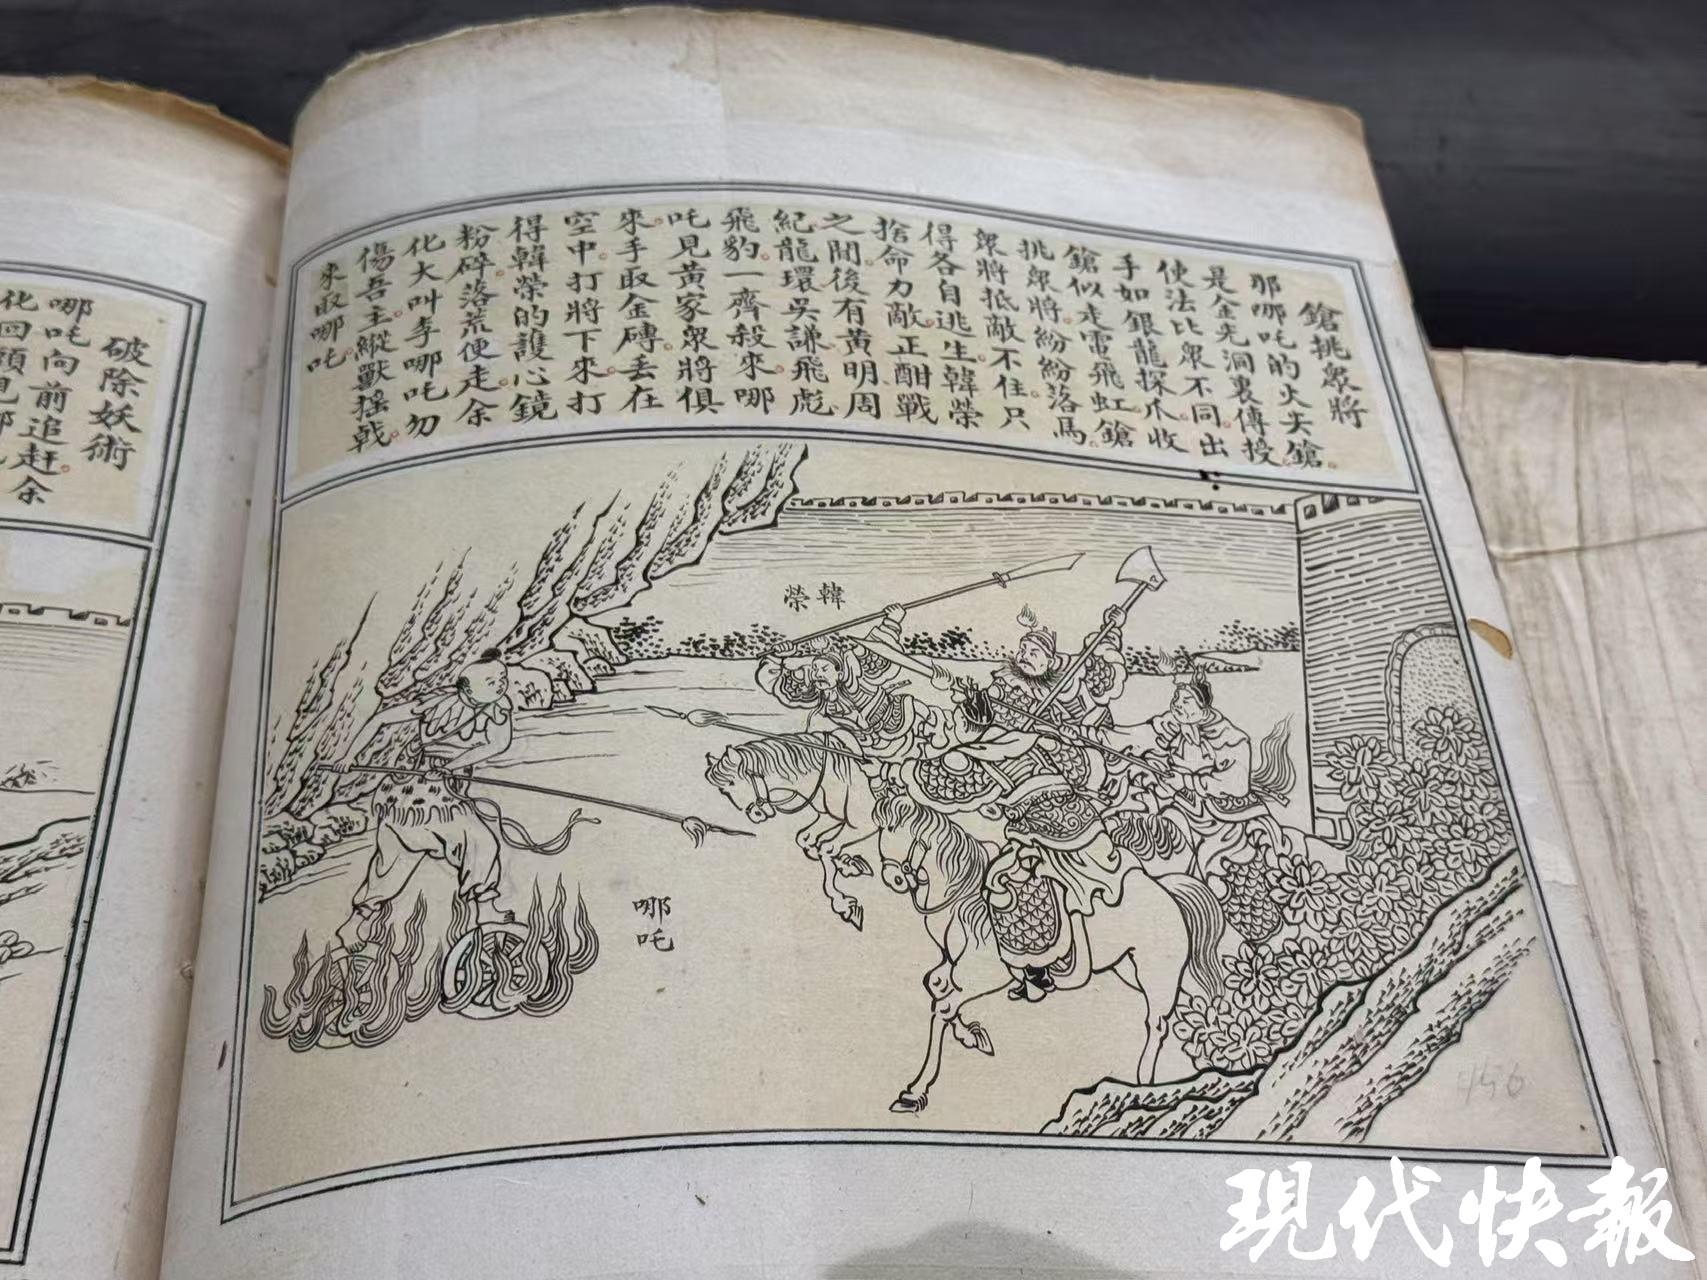 鎗挑衆將
那哪吒的火尖鎗。
是金光洞裏傳授。
使法比衆不同。出
手如銀龍探爪。收
鎗似走電飛虹。鎗
挑衆將。紛紛落馬。
衆將抵敵不住。只
得各自逃生。韓榮
捨命力敵。正酣戰
之間。後有黃明周
紀龍環吳謙飛彪
飛豹。一齊殺來。哪
吒見黃家衆將俱
來。手取金磚。丟在
空中。打將下來。打
得韓榮的護心鏡
粉碎。落荒便走。余
化大叫李哪吒勿
傷吾主。縱獸搖戟。
來取哪吒。
韓榮
哪吒
破除妖術
哪吒向前追赶。余
化回頭見哪
456
現代快報